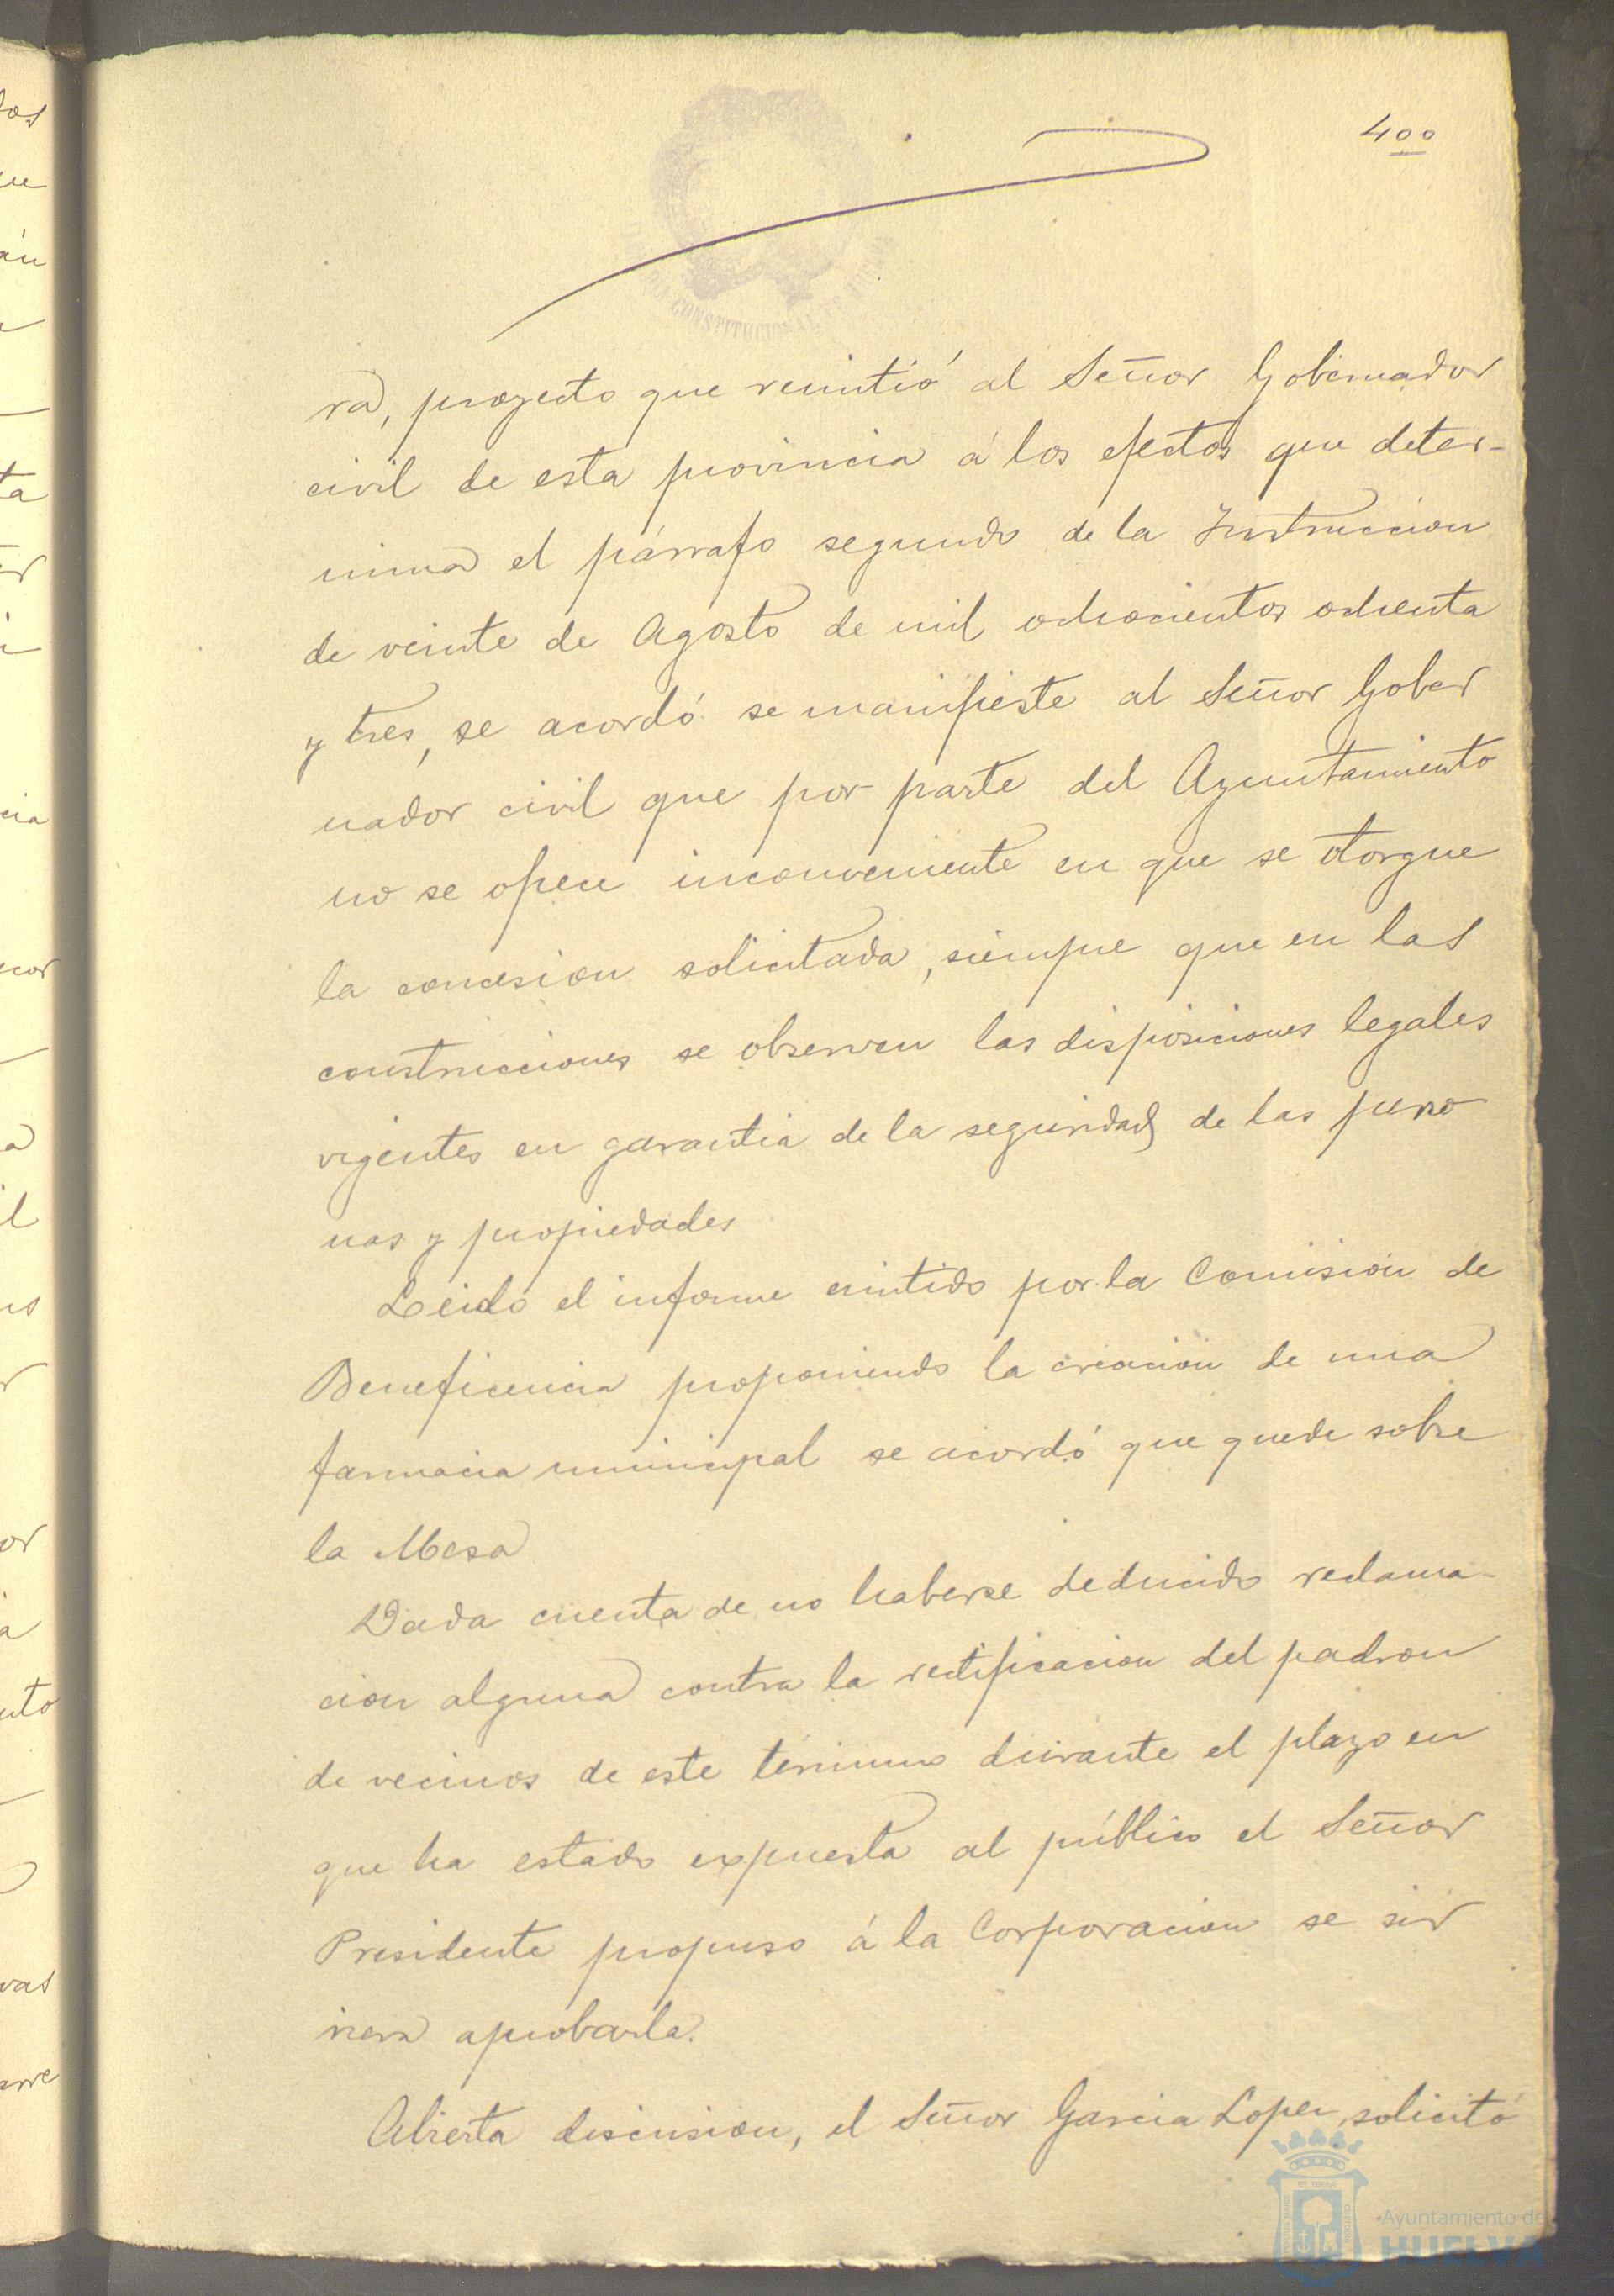 400
CONSTITUCIONAL
ra, proyecto que remitió al Señor Gobernador
civil de esta provincia á los efectos que deter-
mina el párrafo segundo de la Instruccion
de veinte de Agosto de mil ochocientos ochenta
y tres, se acordó se manifieste al Señor Gober
nador civil que por parte del Ayuntamiento
no se ofrece inconveniente en que se otorgue
la concesion solicitada, siempre que en las
construcciones se observen las disposiciones legales
vigentes en garantia de la seguridad de las perso
nas y propiedades
Leido el informe emitido por la Comision de
Beneficencia proponiendo la creacion de una
farmacia municipal se acordó que quede sobre
la Mesa
Dada cuenta de no haberse deducido reclama-
cion alguna contra la rectificacion del padron
de vecinos de este término durante el plazo en
que ha estado expuesta al público el Señor
Presidente propuso á la Corporacion se sir
viera aprobarla.
Abierta discusion, el Señor Garcia Lopez, solicitó
Ayuntamiento de
HUELVA